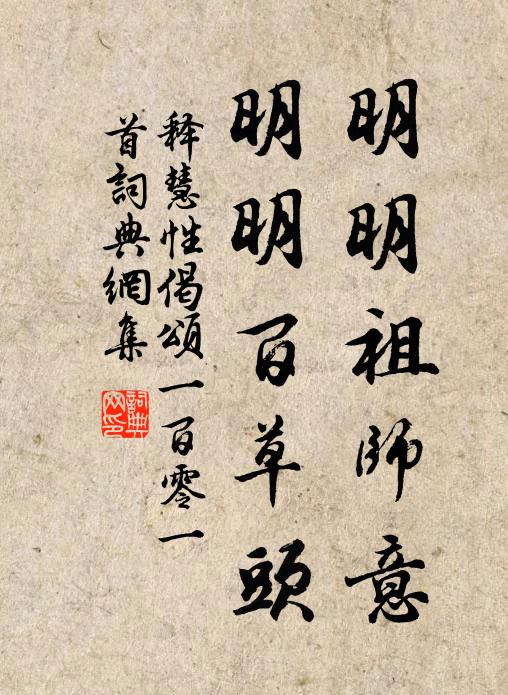 明明祖師意
明明百草頭
释慧性偈頌一百零一
首詞典網集
詞典网印